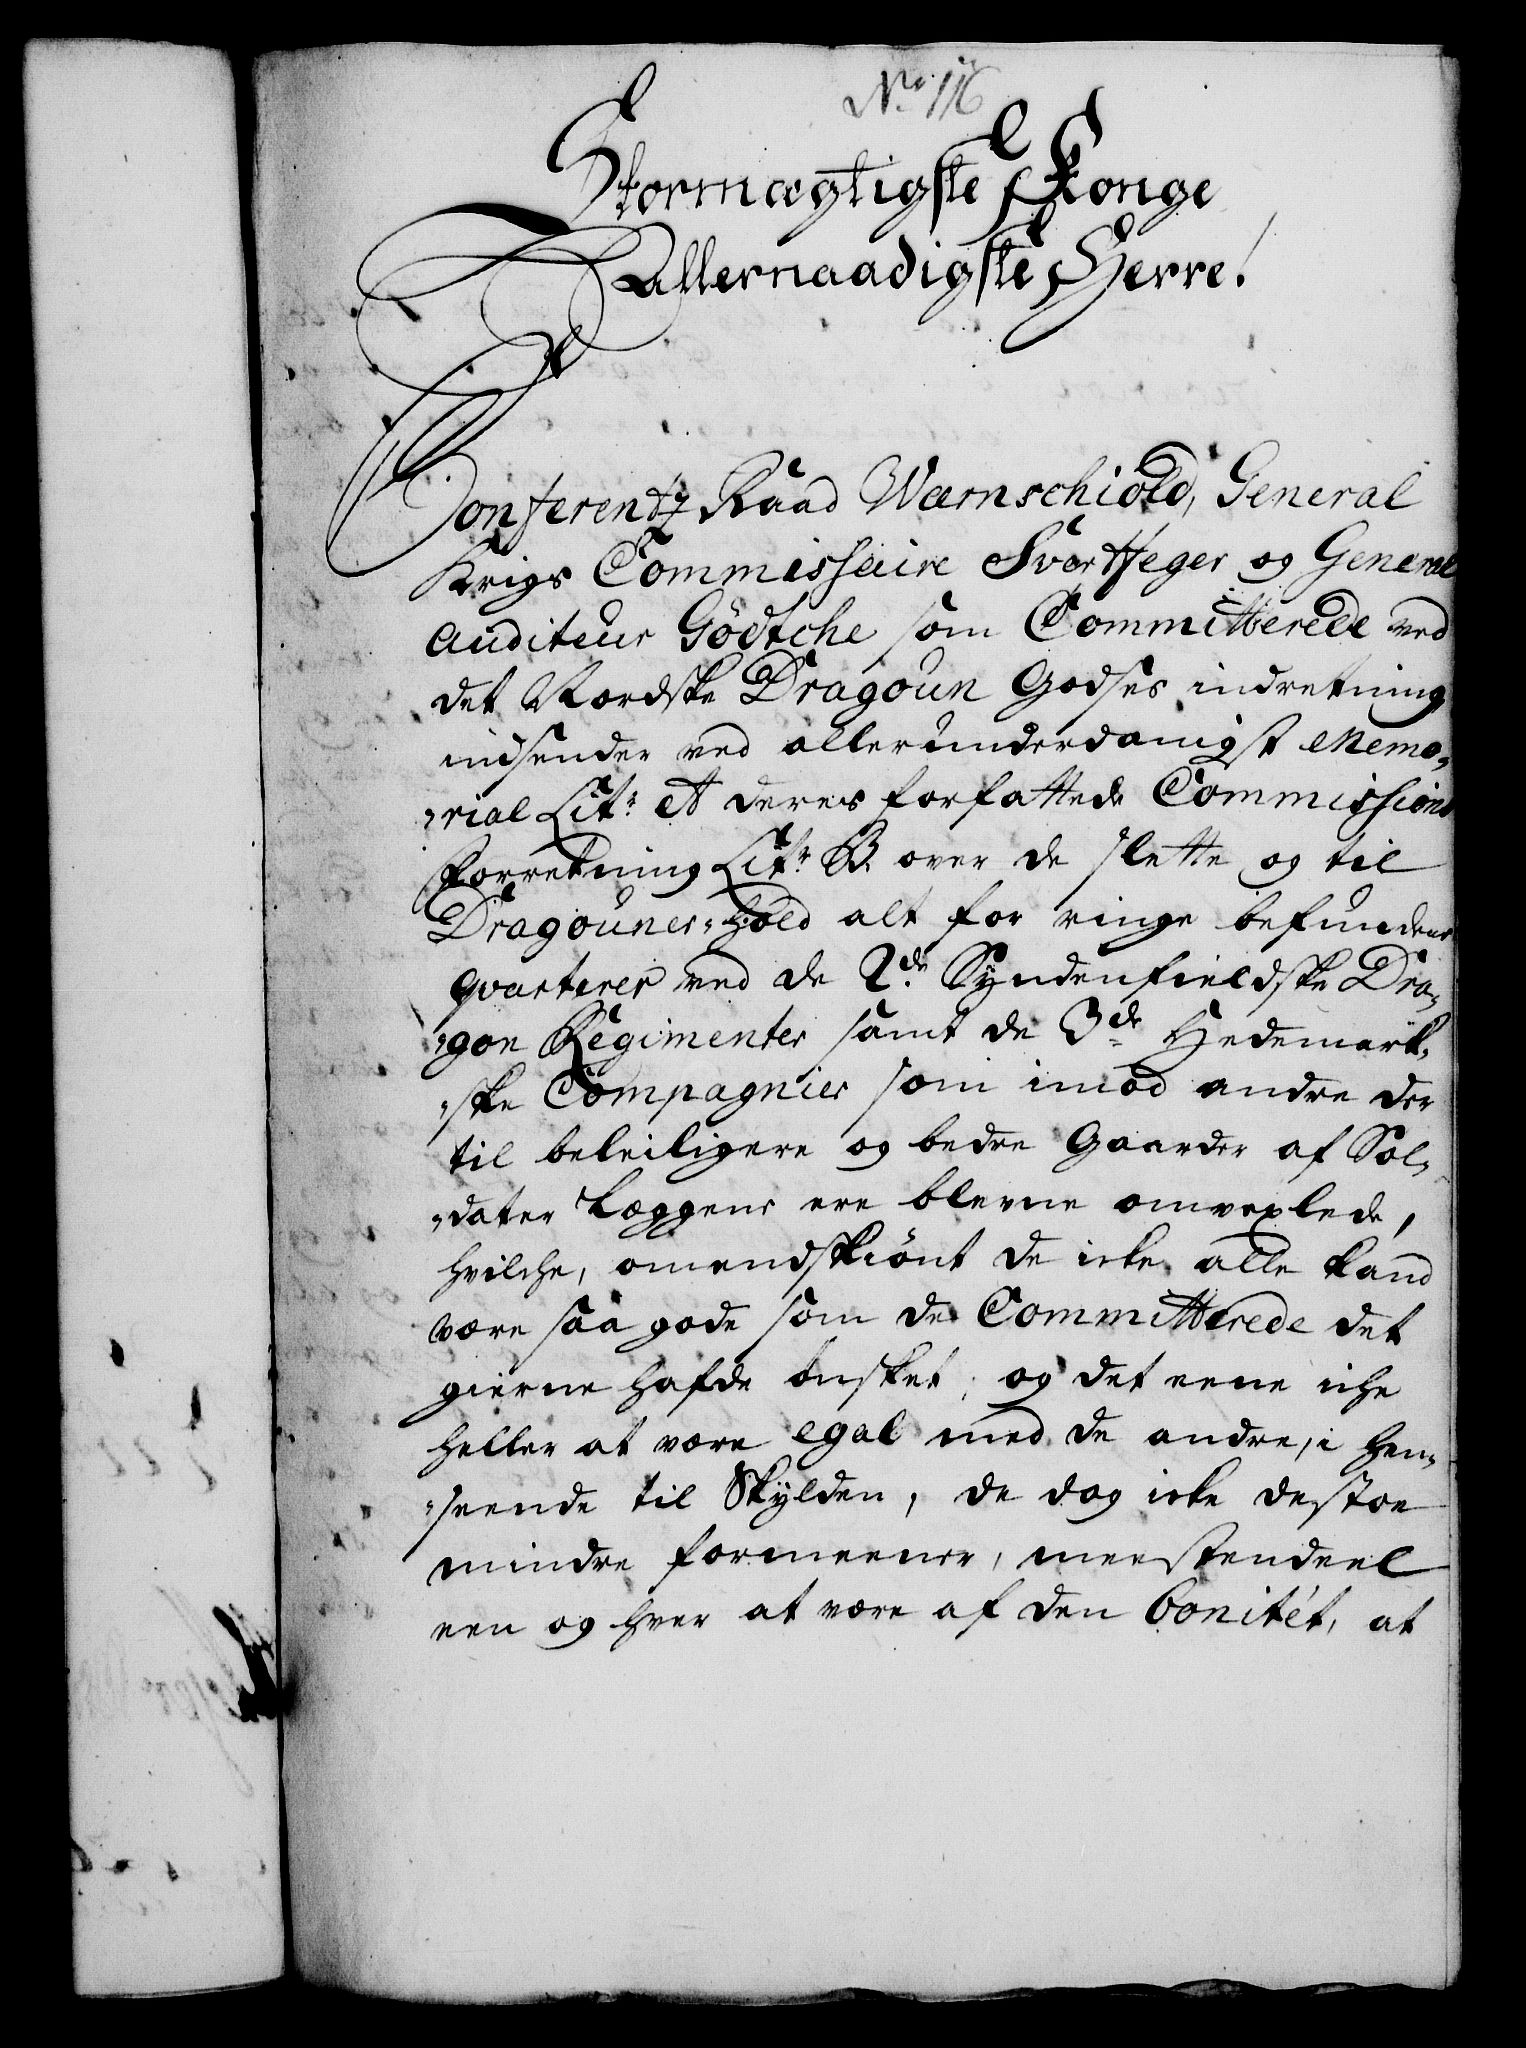 No. 116
Stormægtigste Konge
Allernaadigste Herre!
Conferentz Raad Wærnschiold, General
Krigs Commissaire Svartfeger og General
Auditeur Gödtche som Committerede ved
det Nordske Dragoun Godses indretning
indsender ved allerunderdanigst Memo„
„rial Litr. A deres forfattede Commissions
Forretning Litr. B. over de slette og til
Dragouner„hold alt for ringe befundene
qvarterer ved de 2de Syndenfieldske Dra„
„gon Regimenter samt de 3de Hedemark„
„ske Compagnier som imod andre der
til beleiligere og bedre Gaarder af Sol„
„dater Læggene ere blevne omvexlede,
hvilche, omendskiönt de icke alle kand
være saa gode som de Committerede det
gierne hafde önsket, og det eene iche
heller at være egal med de andre, i hen„
„seende til Skylden, de dog icke destoe
mindre formeener, meestendeel
een og hver at være af den bonitét, at